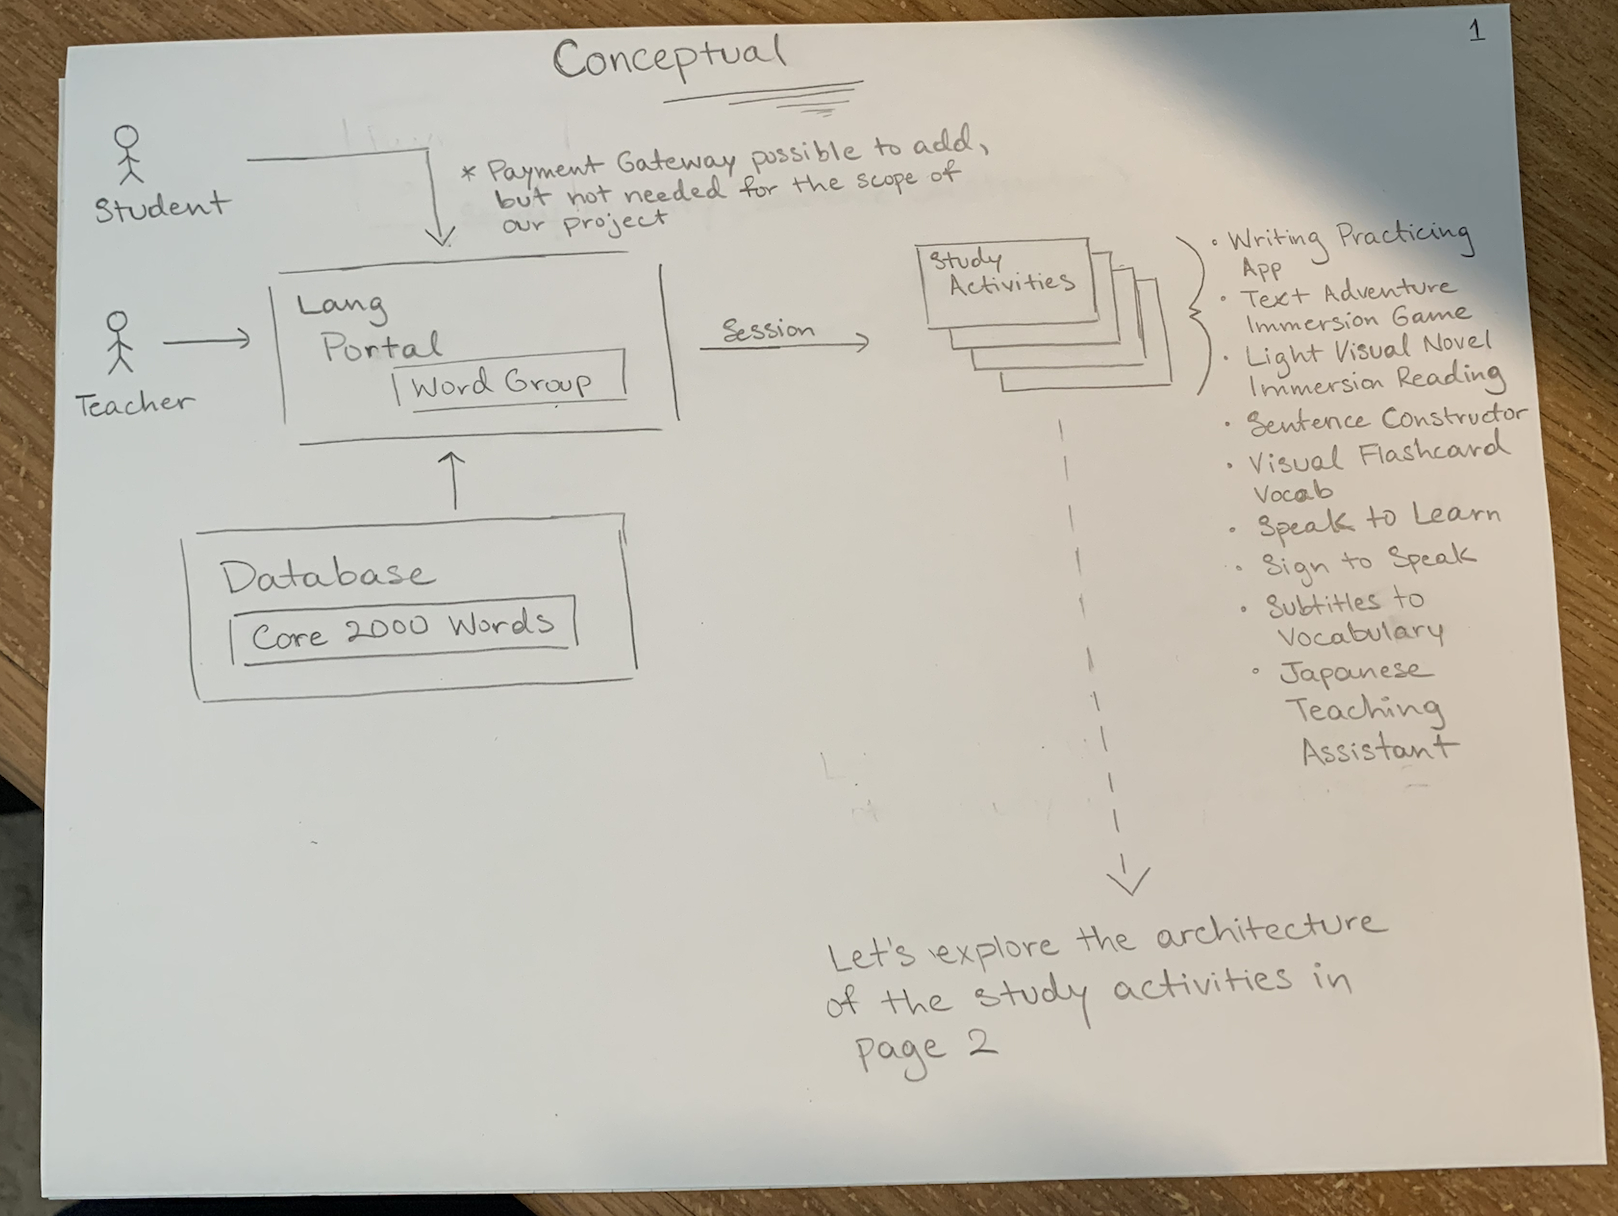 1
Conceptual
Student
* Payment Gateway possible to add,
but not needed for the scope of
our project
Teacher
Lang
Portal
Word Group
Session
Study
Activities
• Writing Practicing
App
• Text Adventure
Immersion Game
• Light Visual Novel
Immersion Reading
• Sentence Constructor
• Visual Flashcard
Vocab
• Speak to Learn
• Sign to Speak
• Subtitles to
Vocabulary
• Japanese
Teaching
Assistant
Database
Core 2000 Words
Let's explore the architecture
of the study activities in
page 2